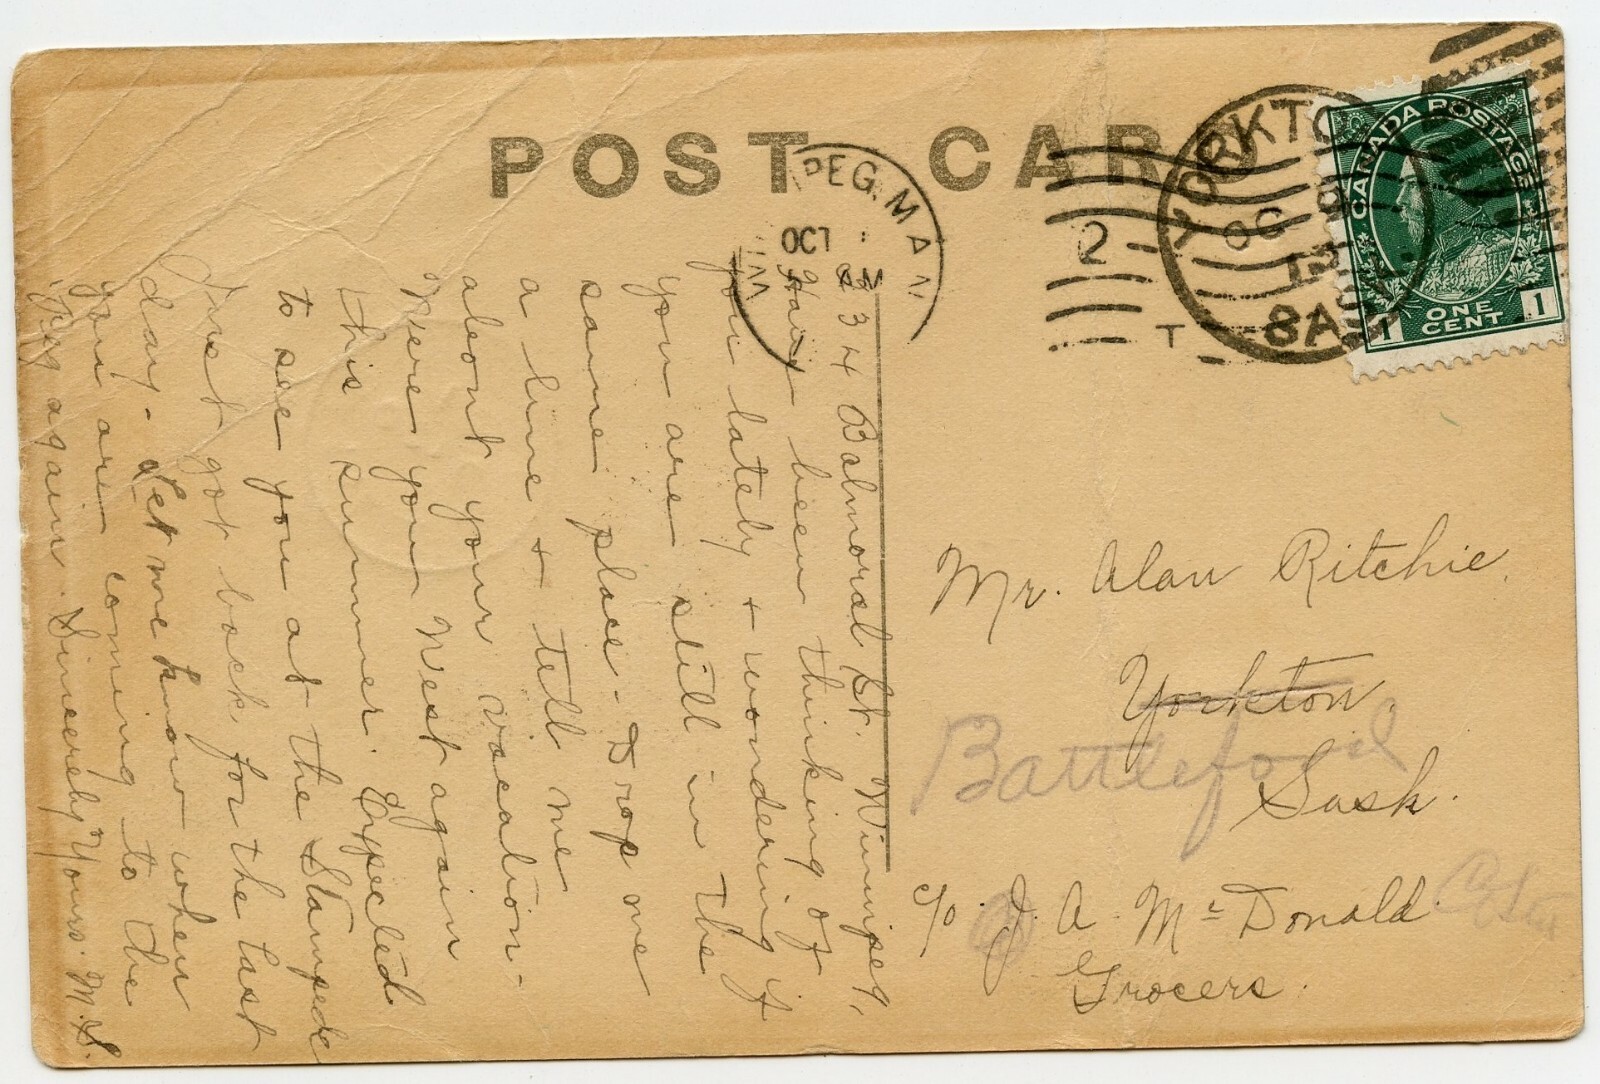 POST CARD
PEG. MAN
OCT
WIN
2
T
YORKTO
OC 9
13
8 A
CANADA POSTAGE
1 ONE CENT 1
234 Balmoral St. Winnipeg,
Have been thinking of
you lately + wondering if
you are still in the
same place - Drop me
a line + tell me
about your vacation -
Were you West again
this summer. Expected
to see you at the Stampede
Just got back for the last
day - Let me know when
you are coming to the
'Peg again. Sincerely Yours. M.S.
Mr. Alan Ritchie.
Yorkton.
Battleford
Sask.
c/o J. A. McDonald
Grocers.